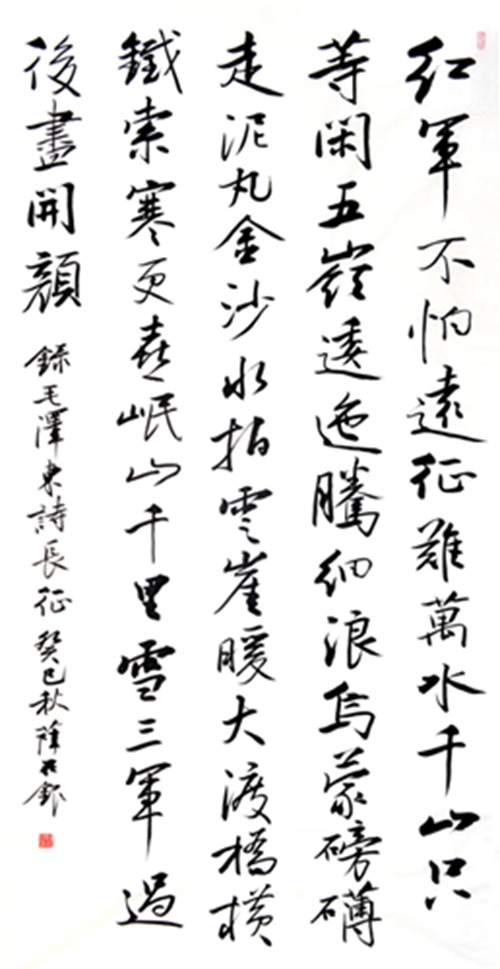 紅軍不怕遠征難萬水千山只
等閑五嶺逶迤騰細浪烏蒙磅礴
走泥丸金沙水拍雲崖暖大渡橋橫
鐵索寒更喜岷山千里雪三軍過
後盡開顏
錄毛澤東詩長征 癸巳秋